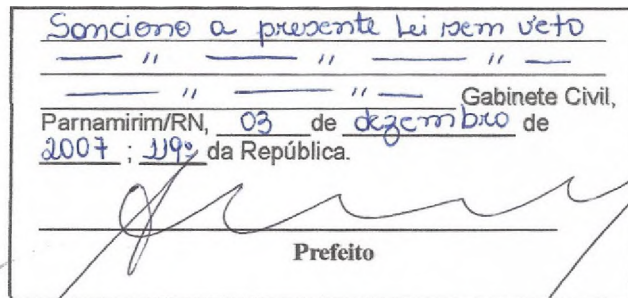 Sanciono a presente Lei sem veto
— " — — " — — " —
— " — — " — Gabinete Civil,
Parnamirim/RN, 03 de dezembro de
2007 ; 119º da República.
Prefeito